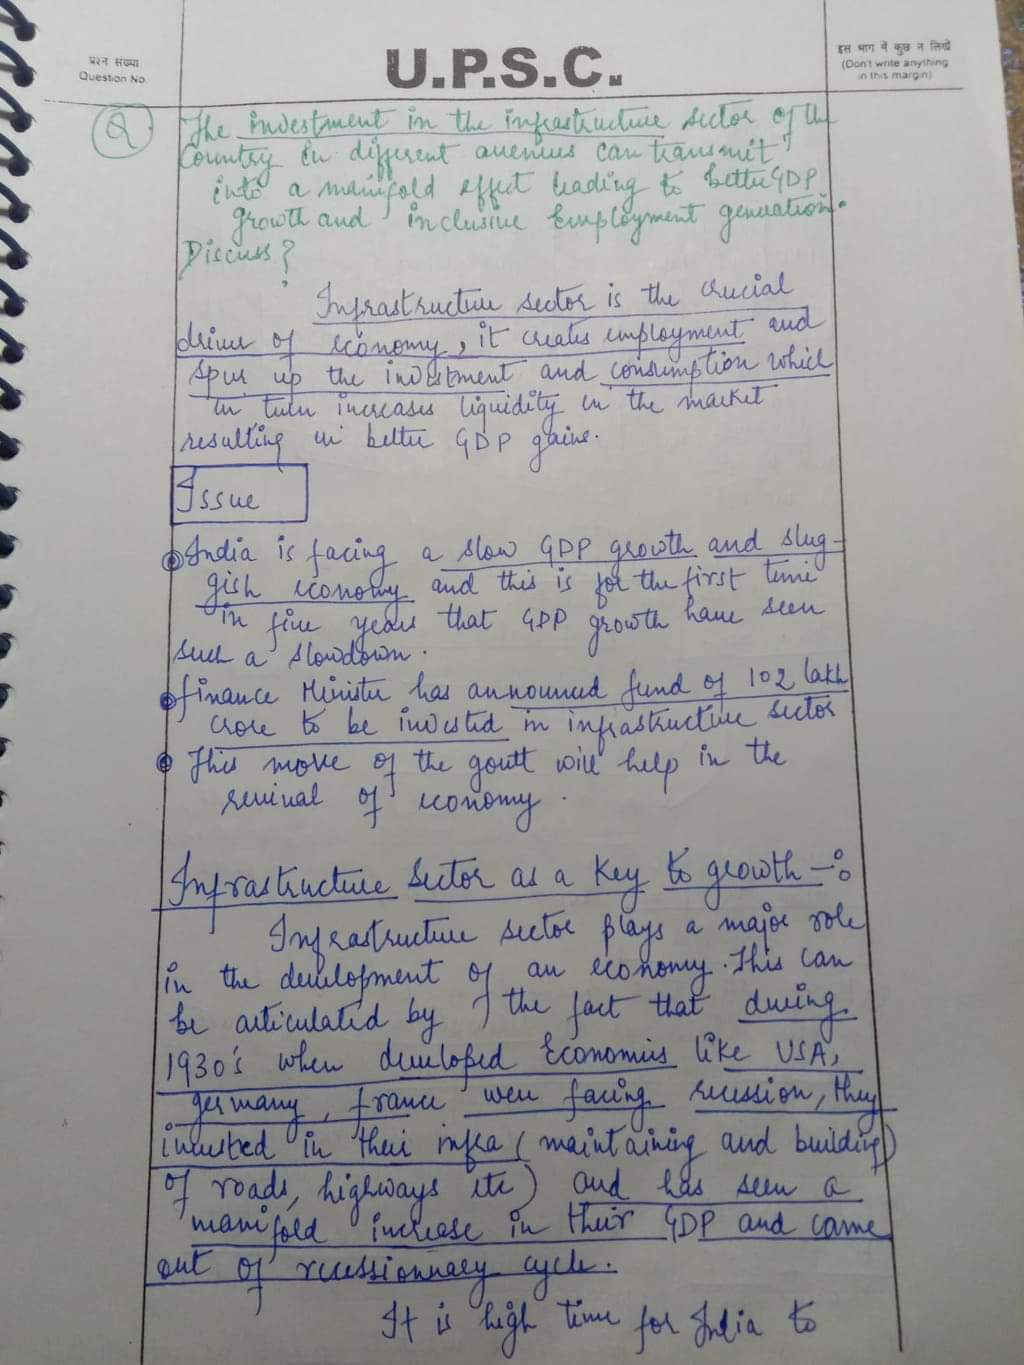 प्रश्न संख्या
Question No.
U.P.S.C.
इस भाग में कुछ न लिखें
(Don't write anything
in this margin)
Q
The investment in the infrastructure sector of the
Country in different avenues can transmit
into a manifold effect leading to better GDP
growth and inclusive Employment generation.
Discuss?
Infrastructure sector is the crucial
driver of economy, it creates employment and
spur up the investment and consumption which
in turn increases liquidity in the market
resulting in better GDP gains.
Issue
India is facing a slow GDP growth and slug-
gish economy and this is for the first time
in five years that GDP growth have seen
such a slowdown.
Finance Minister has announced fund of 102 lakh
crore to be invested in infrastructure sector
This move of the govtt will help in the
revival of economy.
Infrastructure Sector as a Key to growth -:
Infrastructure sector plays a major role
in the development of an economy. This can
be articulated by the fact that during
1930's when developed Economies like USA,
Germany, france were facing recession, they
invested in their infra (maintaining and building
of roads, highways etc) and has seen a
manifold increase in their GDP and came
out of recessionnary cycle.
It is high time for India to